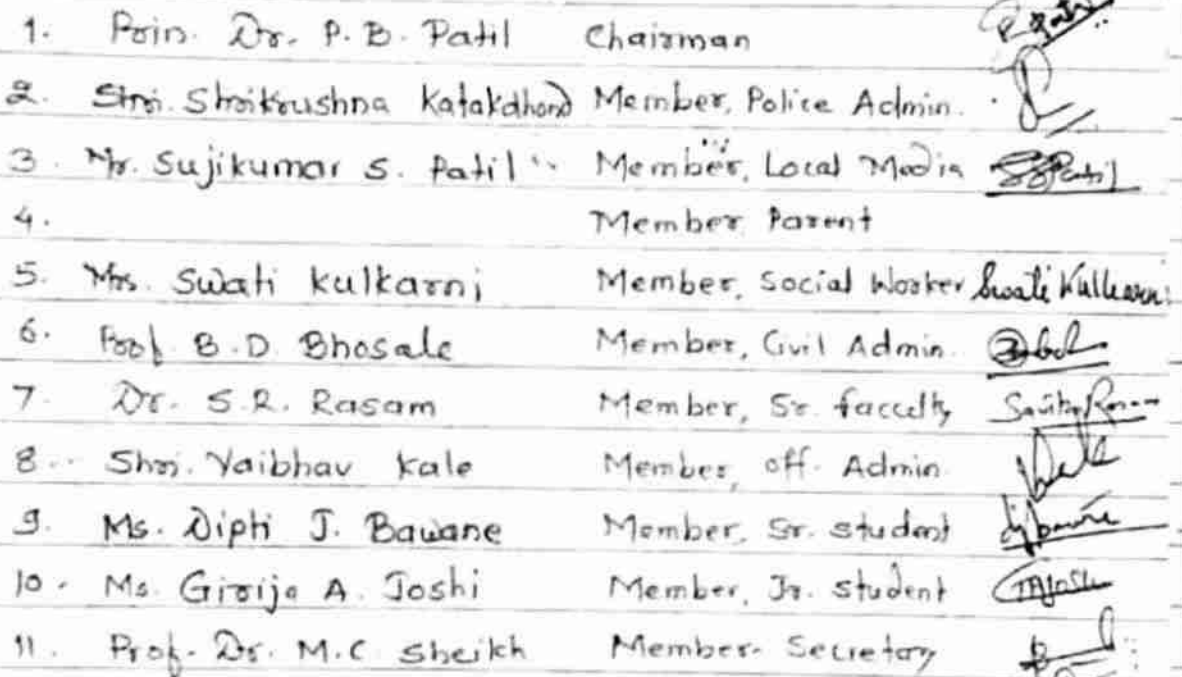 1. Prin. Dr. P. B. Patil Chairman
2. Shri. Shrikrushna Katakdhond Member, Police Admin.
3. Mr. Sujikumar S. Patil Member, Local Media SSPatil
4. Member Parent
5. Mrs. Swati Kulkarni Member, Social Worker Swati Kulkarni
6. Prof. B.D. Bhosale Member, Civil Admin.
7. Dr. S.R. Rasam Member, Sr. faculty
8. Shri. Vaibhav Kale Member, off. Admin
9. Ms. Dipti J. Bawane Member, Sr. student
10. Ms. Girija A. Joshi Member, Jr. student
11. Prof. Dr. M.C. Sheikh Member-Secretary